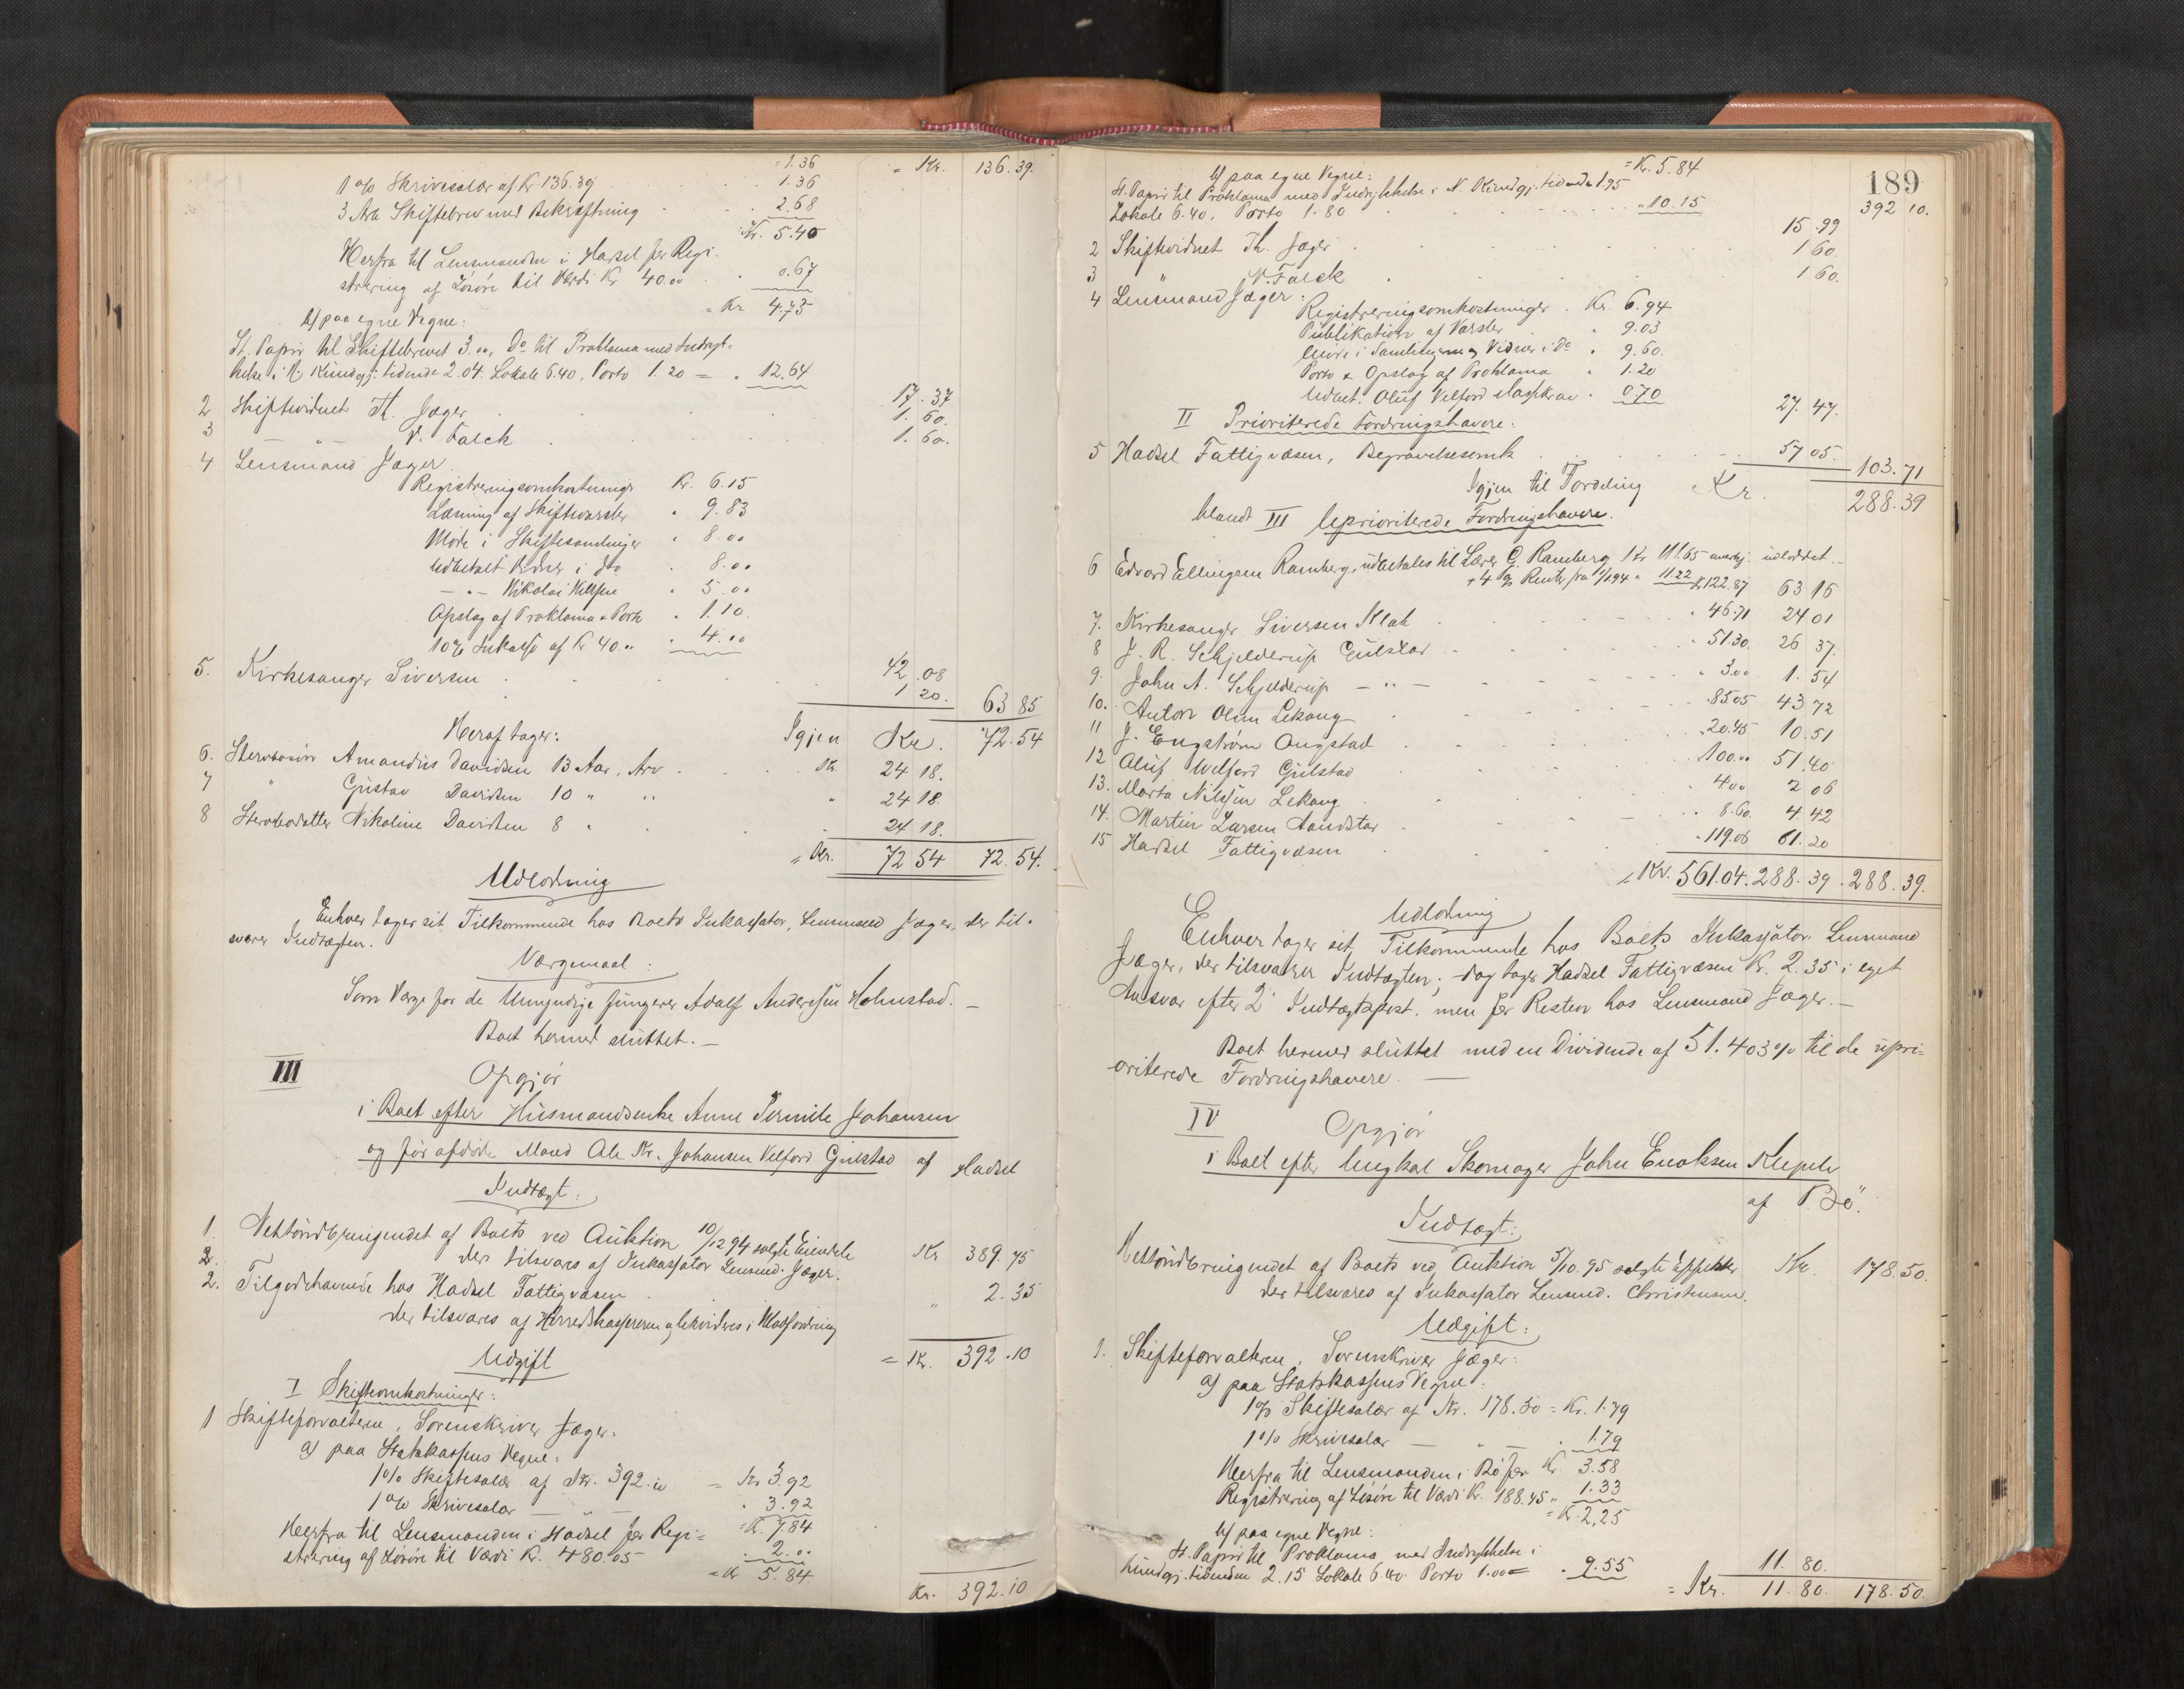 = 1.36 " Kr. 136.39.
1 % Skrivesalær af Kr. 136.39 . . . . 1.36
3 Ark Skiftebrev med Bekræftning . . 2.68
Kr. 5.40
Herfra til Lensmanden i Hadsel for Regi-
strering af Løsøre til Værdi Kr 40.00 . 0.67
= Kr 4.73
b) paa egne Vegne:
St. Papir til Skiftebrevet 3.00, Do til Proklama med Indryk-
kelse i N. Kundgj. tidende 2.04. Lokale 6.40, Porto 1.20 = " 12.64
17.37
2 Skiftevidnet Th. Jæger . . . 1.60.
3 — " — N. Falck . . . 1.60.
4 Lensmand Jæger
Registreringsomkostninger Kr. 6.15
Læsning af Skiftevarsler " 9.83
Møde i Skiftesamlinger " 8.00
Udbetalt Vidner i do " 8.00
— " — Nikolai Nilssen " 5.00
Opslag af Proklama & Porto " 1.10
10% Inkasso af Kr 40.00 " 4.00
42.08
5. Kirkesanger Siversen . . . 1 20. 63 85
Igjen Kr. 72.54
Heraf tager:
6. Stervbosøn Amandus Davidsen 13 Aar, Arv . . Kr 24 18.
7 " Gustav Davidsen 10 " " " 24 18.
8 Stervbodatter Nikoline Davidsen 8 " . . 24 18.
= Kr. 72 54 72.54.
Udlodning
Enhver tager sit Tilkommende hos Boets Inkassator, Lensmand Jæger, der til-
svarer Indtægten.
Værgemaal:
Som Værge for de Umyndige fungerer Adolf Anderssen Holmstad. —
Boet hermed sluttet. —
III Opgjør
i Boet efter Husmandsenke Anne Pernille Johansen
og før afdøde Mand Ole Kr. Johansen Velford Gulstad af Hadsel
Indtægt:
1. Nettoudbringendet af Boets ved Auktion 10/12 94 solgte Eiendele
der tilsvares af Inkassator Lensmd. Jæger. Kr 389.75
2. Tilgodehavende hos Hadsel Fattigvæsen . " 2.35
der tilsvares af Herredskassereren og likvideres i Modfordring
= Kr. 392.10
Udgift
I Skifteomkostninger:
1 Skifteforvalteren, Sorenskriver Jæger.
a) paa Statskassens Vegne:
1% Skiftesalær af Kr. 392.10 = Kr 3.92
1% Skrivesalær — " — " 3.92
= Kr. 7.84
Herfra til Lensmanden i Hadsel for Regi-
strering af Løsøre til Værdi Kr. 480.05 . 2.00
= Kr 5.84
Kr. 392.10
189
b) paa egne Vegne: = Kr. 5.84 392 10.
St. Papir til Proklama med Indrykkelse i N. Kundgj. tidende 1.95
Lokale 6.40. Porto 1.80 . . . " 10.15
15.99
2 Skiftevidnet Th. Jæger . . . 1 60.
3 " N. Falck . . . 1 60.
4 Lensmand Jæger:
Registreringsomkostninger . Kr. 6.94
Publikation af Varsler . " 9.03
Møde i Samlingerne og Vidner i do " 9.60.
Porto & Opslag af Proklama " 1.20
Udbet. Oluf Velford " 0.70
27.47.
II Prioriterede Fordringshavere:
5 Hadsel Fattigvæsen, Begravelsesomk . . . 57 05. 103.71
Igjen til Fordeling Kr. 288.39
blandt III Uprioriterede Fordringshavere.
6 Edvard Ellingsen Ramberg, udbetales til Lærer G. Ramberg Kr 111.65 udloddet —
+ 4 % Renter fra 11.22 Kr 122.87 63 16
7. Kirkesanger Siversen Klak . . . " 46.71 24 01
8 J. R. Schjelderup Gulstad . . . " 51.30. 26 37.
9. John A. Schjelderup — " — . . . " 3.00 1.54
10. Anton Olsen Lekang . . . " 85.05 43 72
11 J. Engstrøm Ongstad . . . " 20.45 10.51
12 Oluf Velford Gulstad . . . " 100.00 51.40
13. Marta Nilssen Lekang . . . " 4.00 2 06
14. Martin Larsen Sandstad . . . " 8.60. 4.42
15 Hadsel Fattigvæsen . . . " 119.06 61.20
= Kr. 561.04. 288.39. 288.39.
Udlodning
Enhver tager sit Tilkommende hos Boets Inkassator Lensmand
Jæger, der tilsvarer Indtægten; dog tager Hadsel Fattigvæsen Kr. 2.35 i eget
Ansvar efter 2' Indtægtspost, men for Resten hos Lensmand Jæger. —
Boet hermed sluttet med en Dividende af 51.403% til de upri-
oriterede Fordringshavere. —
IV Opgjør
i Boet efter Ungkal Skomager John Enoksen Klepele
af Bø.
Indtægt:
Nettoudbringendet af Boets ved Auktion 5/10.95 solgte Effekter Kr. 178.50.
der tilsvares af Inkassator Lensmd. Christensen.
Udgift:
1. Skifteforvalteren, Sorenskriver Jæger:
a) paa Statskassens Vegne.
1% Skiftesalær af Kr. 178.50 = Kr. 1.79
1% Skrivesalær — " — . 1.79
Kr. 3.58
Herfra til Lensmanden i Bø for
Registrering af Løsøre til Værdi Kr. 188.45 " 1.33
= Kr. 2.25
b) paa egne Vegne:
St. Papir til Proklama med Indrykkelse i
kundgj. tidenden 2.15 Lokale 6.40. Porto 1.00 = . 9.55 11.80.
= Kr. 11.80. 178.50.